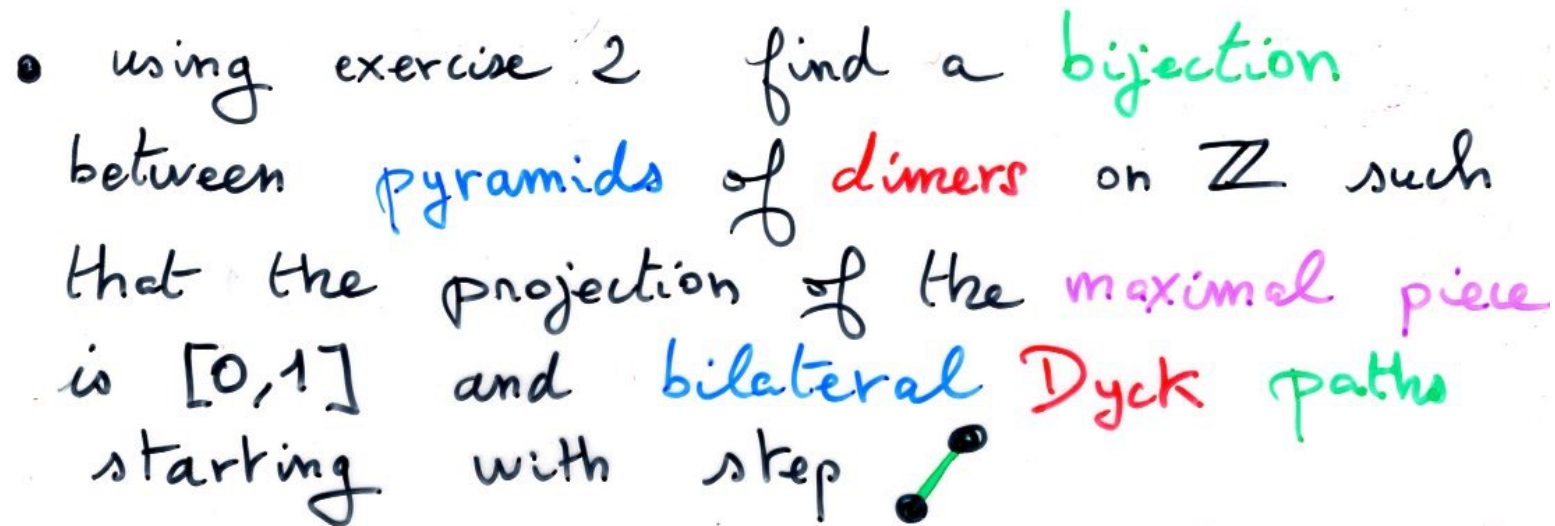 • using exercise 2 find a bijection
between pyramids of dimers on ℤ such
that the projection of the maximal piece
is [0,1] and bilateral Dyck paths
starting with step